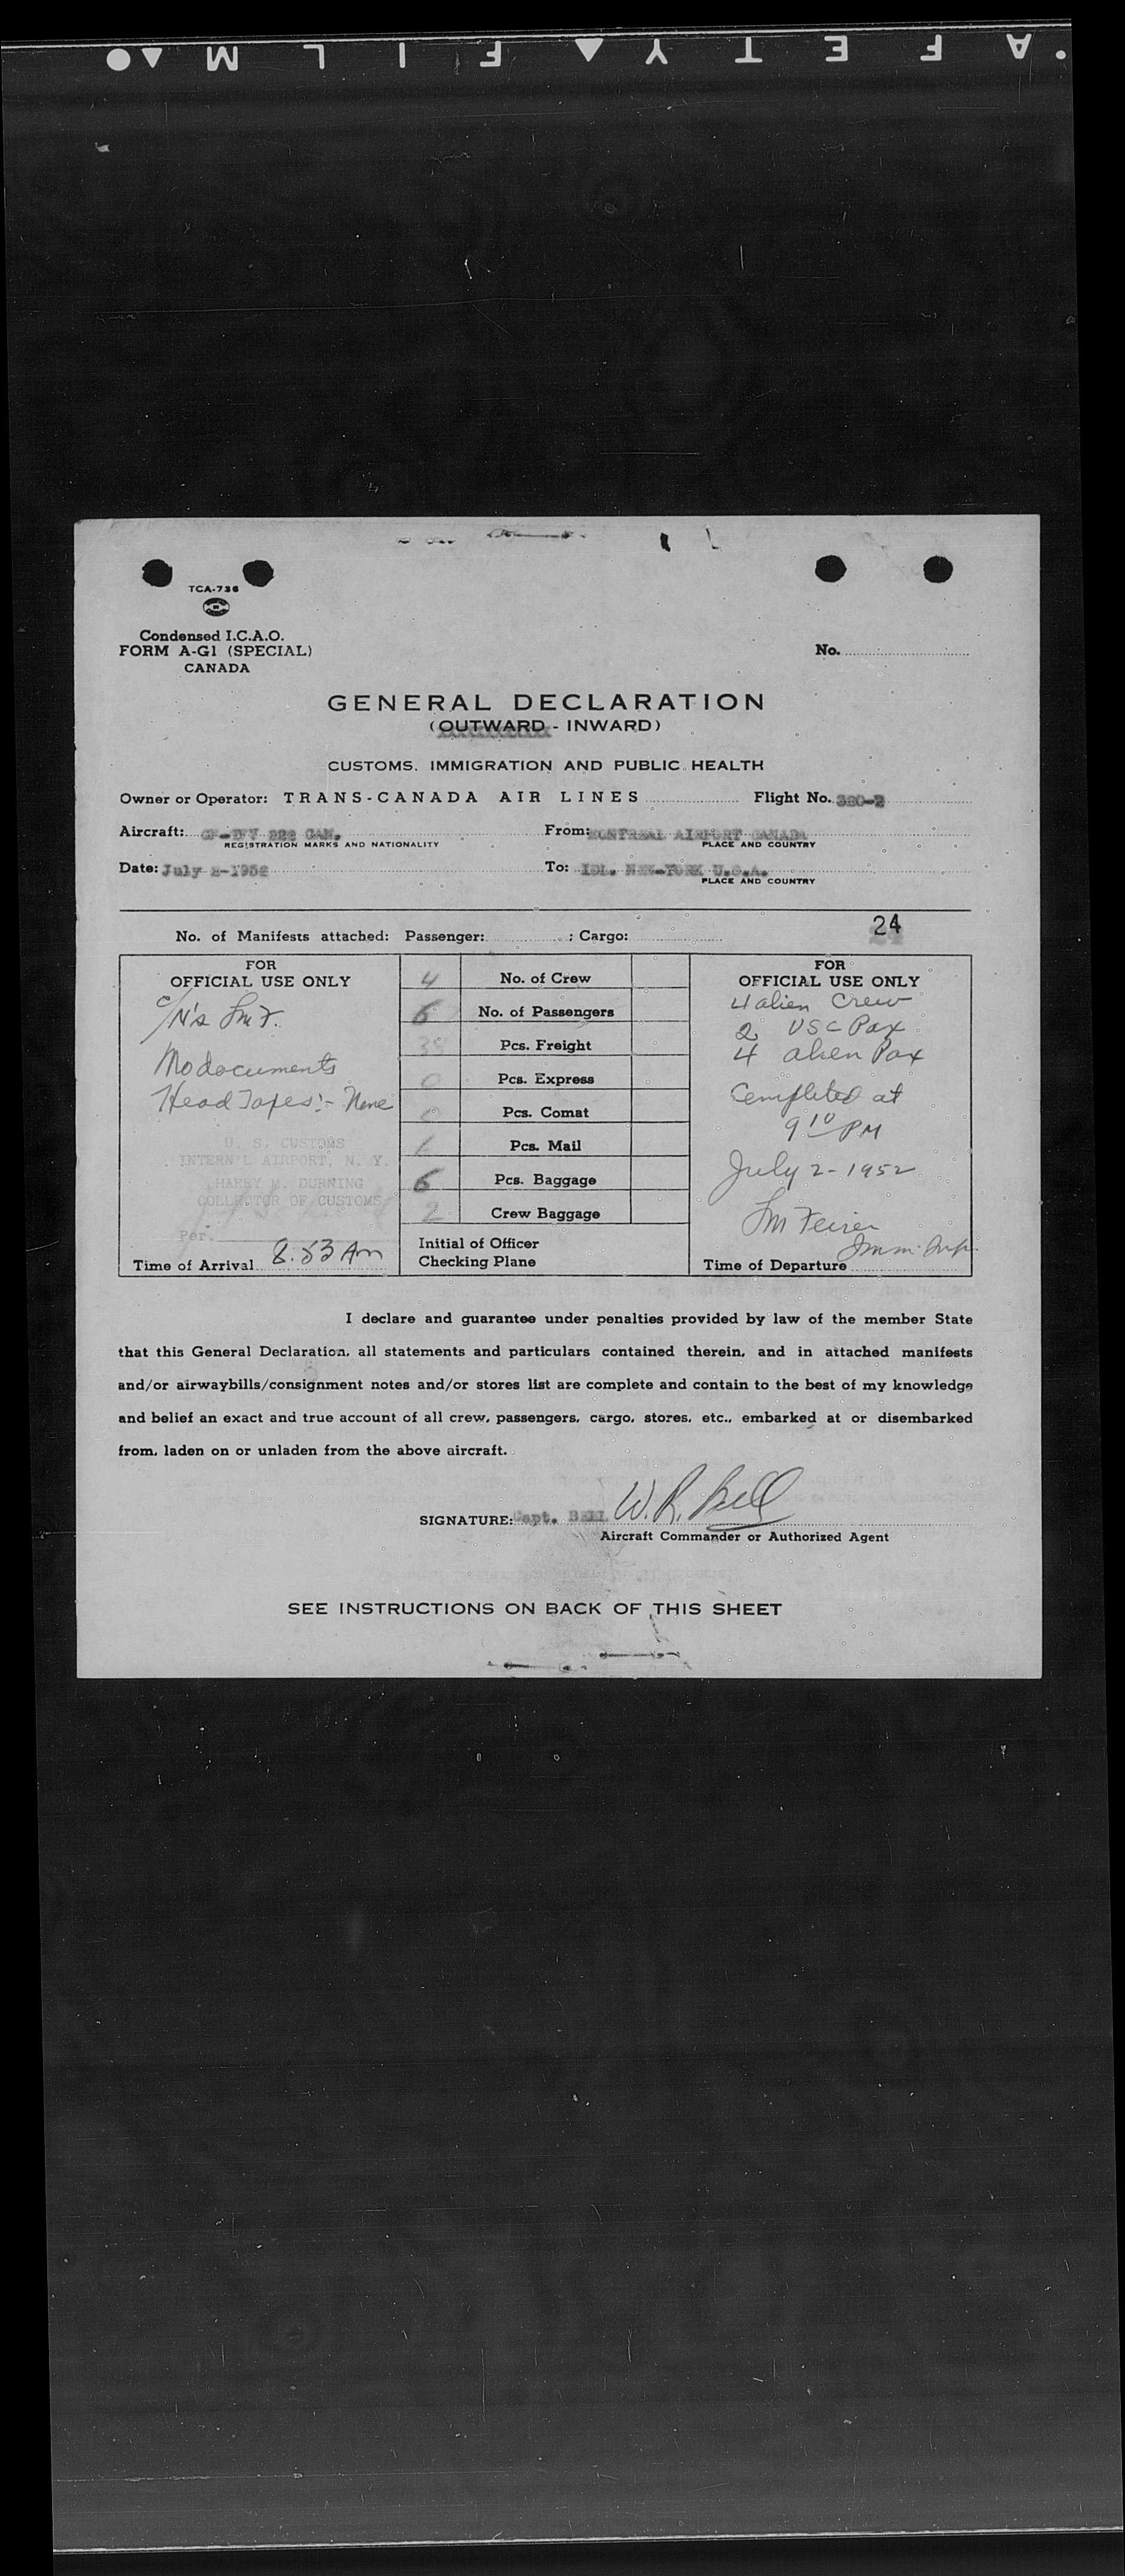 SAFETY FILM
TCA-736
Condensed I.C.A.O.
FORM A-G1 (SPECIAL)
CANADA
No.
GENERAL DECLARATION
(OUTWARD - INWARD)
CUSTOMS, IMMIGRATION AND PUBLIC HEALTH
Owner or Operator: TRANS-CANADA AIR LINES Flight No.
Aircraft: 222 CAN. From: MONTREAL AIRPORT CANADA
REGISTRATION MARKS AND NATIONALITY PLACE AND COUNTRY
Date: July 2-1952 To: IDL. NEW-YORK U.S.A.
PLACE AND COUNTRY
24
No. of Manifests attached: Passenger: ; Cargo:
FOR
OFFICIAL USE ONLY
No documents
Head Tapes:- None
U. S. CUSTOMS
INTERN'L AIRPORT, N. Y.
HARRY M. DURNING
COLLECTOR OF CUSTOMS
Per.
Time of Arrival 8.53 Am
4 No. of Crew
6 No. of Passengers
Pcs. Freight
0 Pcs. Express
Pcs. Comat
1 Pcs. Mail
6 Pcs. Baggage
2 Crew Baggage
Initial of Officer
Checking Plane
FOR
OFFICIAL USE ONLY
4 alien Crew
2 USC Pax
4 alien Pax
Completed at
9 10 PM
July 2 - 1952
Imm. Insp.
Time of Departure
I declare and guarantee under penalties provided by law of the member State
that this General Declaration, all statements and particulars contained therein, and in attached manifests
and/or airwaybills/consignment notes and/or stores list are complete and contain to the best of my knowledge
and belief an exact and true account of all crew, passengers, cargo, stores, etc., embarked at or disembarked
from, laden on or unladen from the above aircraft.
SIGNATURE: Capt. BELL W. R. Bell
Aircraft Commander or Authorized Agent
SEE INSTRUCTIONS ON BACK OF THIS SHEET